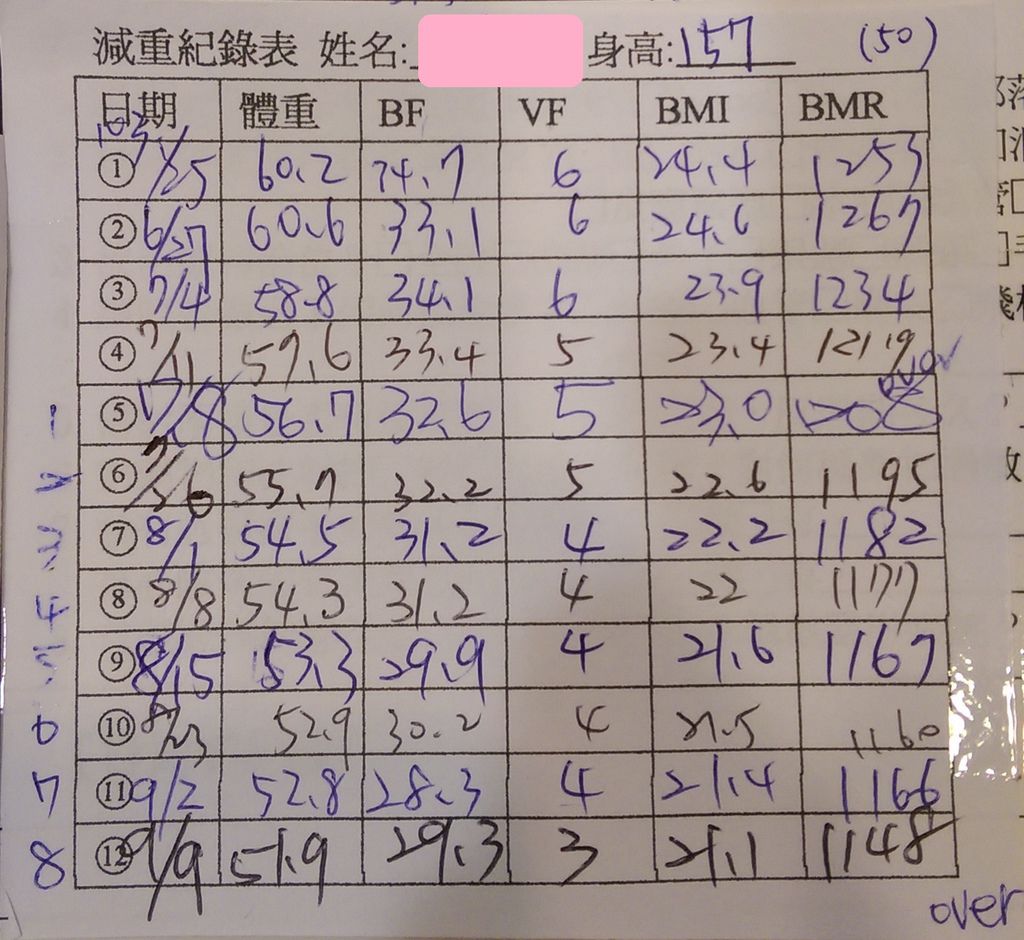 減重紀錄表 姓名: 身高:157 (50)
日期 體重 BF VF BMI BMR
① 103 1/25 60.2 34.7 6 24.4 1253
② 6/27 60.6 33.1 6 24.6 1267
③ 7/4 58.8 34.1 6 23.9 1234
④ 7/11 57.6 33.4 5 23.4 1219
over
1 ⑤ 7/18 56.7 32.6 5 23.0 1208
2 ⑥ 7/26 55.7 32.2 5 22.6 1195
3 ⑦ 8/1 54.5 31.2 4 22.2 1182
4 ⑧ 8/8 54.3 31.2 4 22 1177
5 ⑨ 8/15 53.3 29.9 4 21.6 1167
6 ⑩ 8/23 52.9 30.2 4 21.5 1160
7 ⑪ 9/2 52.8 28.3 4 21.4 1166
8 ⑫ 9/9 51.9 29.3 3 21.1 1148
over